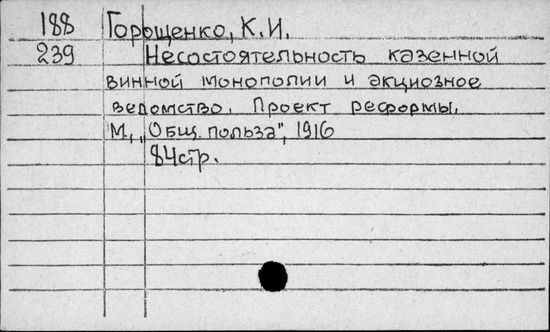 188 Горощенко, К.И.
239 Несостоятельность казенной
винной монополии и акциозное
ведомство. Проект реформы.
М., „Общ. польза", 1916
84стр.